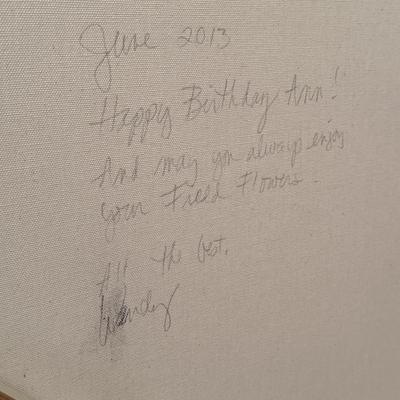 June 2013
Happy Birthday Ann!
And may you always enjoy
your Field Flowers.
All the best,
Wendy